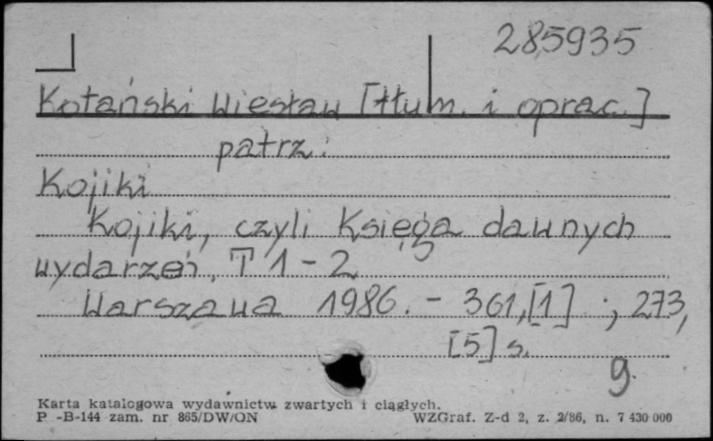 285935
Kotański Wiesław [tłum. i oprac.]
patrz:
Kojiki
Kojiki, czyli Księga dawnych
wydarzeń, T 1-2
Warszawa 1986. - 361,[1] ; 273,
[5] s.
g.
Karta katalogowa wydawnictw zwartych i ciągłych.
P -B-144 zam. nr 865/DW/ON WZGraf. Z-d 2, z. 2/86, n. 7 430 000